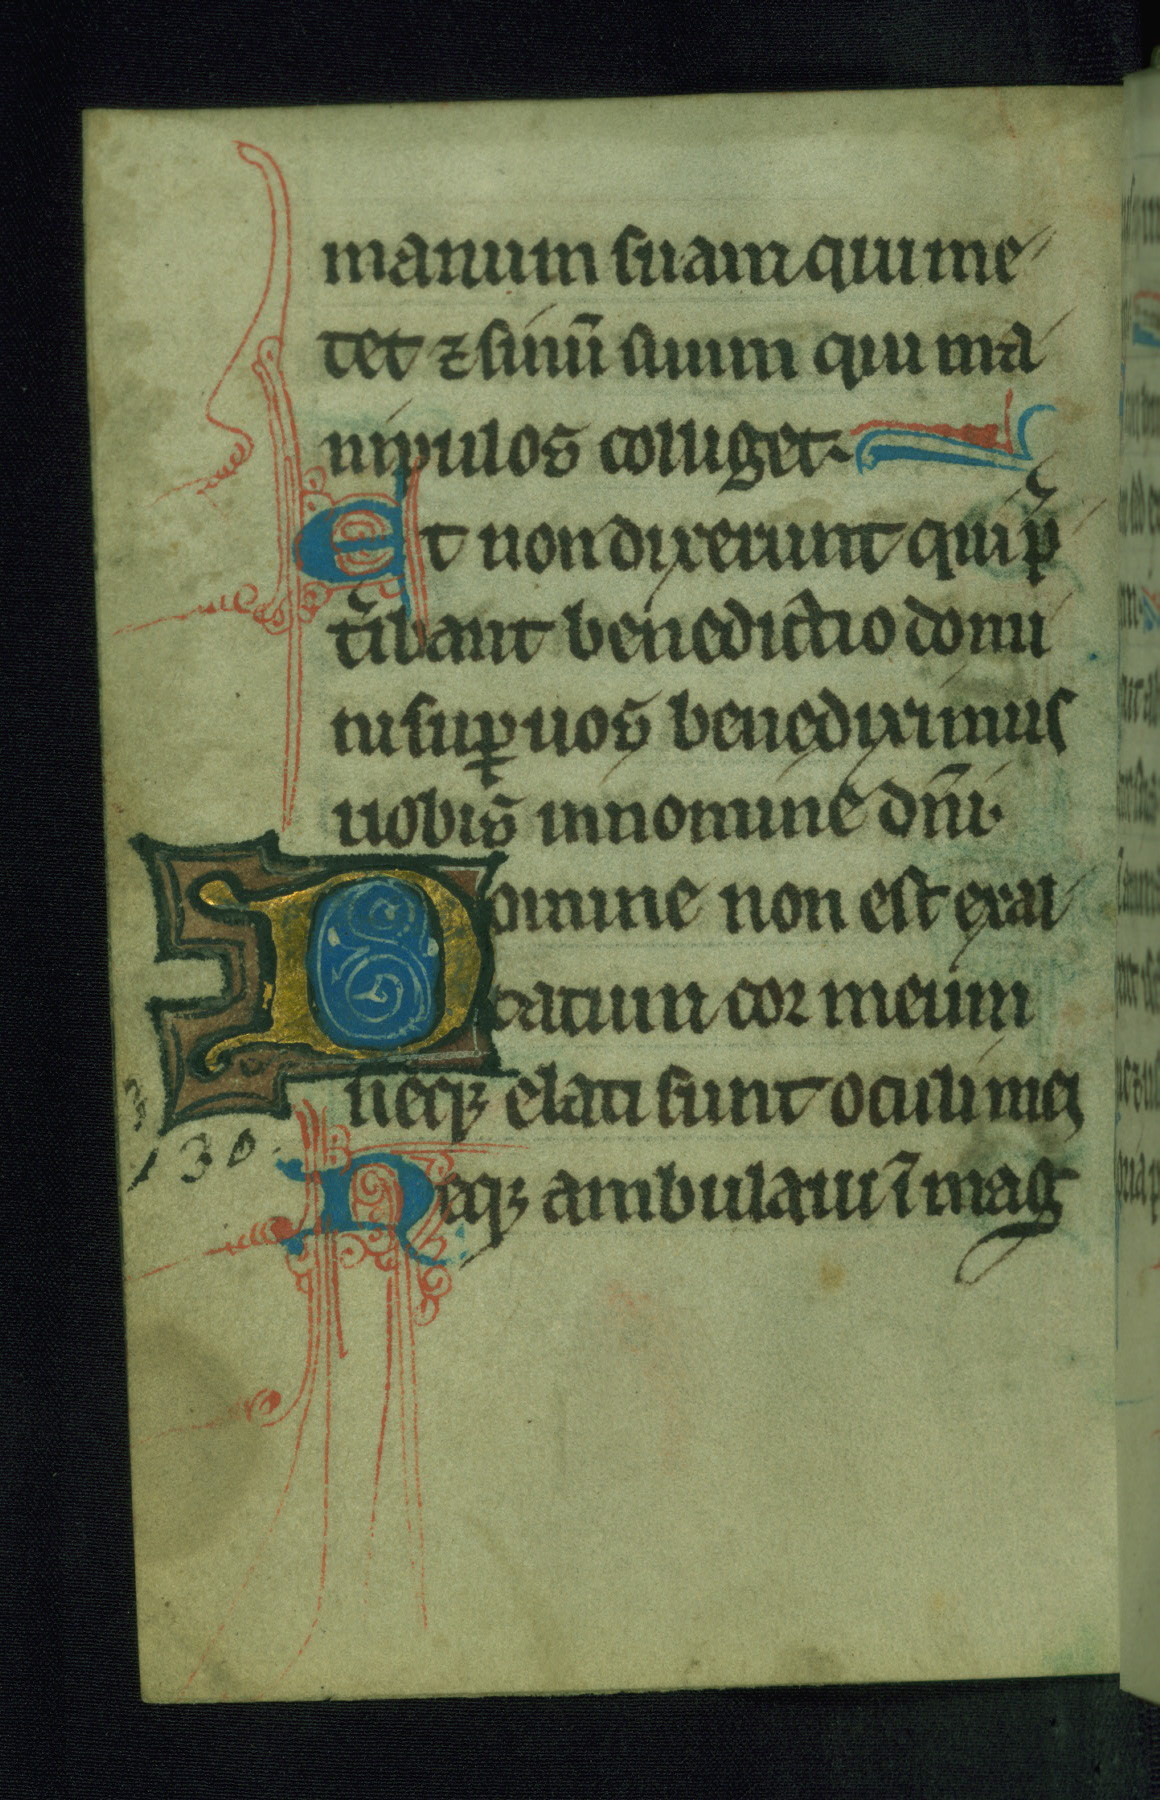 manum suam qui me
tet ⁊ sinū suum qui ma
nipulos colliget.
Et non dixerunt qui p̄
t̾ibant benedictio domi
ni suꝑ uos benediximus
uobis in nomine dn̄i.
Domine non est exal
tatum cor meum
neqꝫ elati sunt oculi mei
130.
Neqꝫ ambulaui ī mag